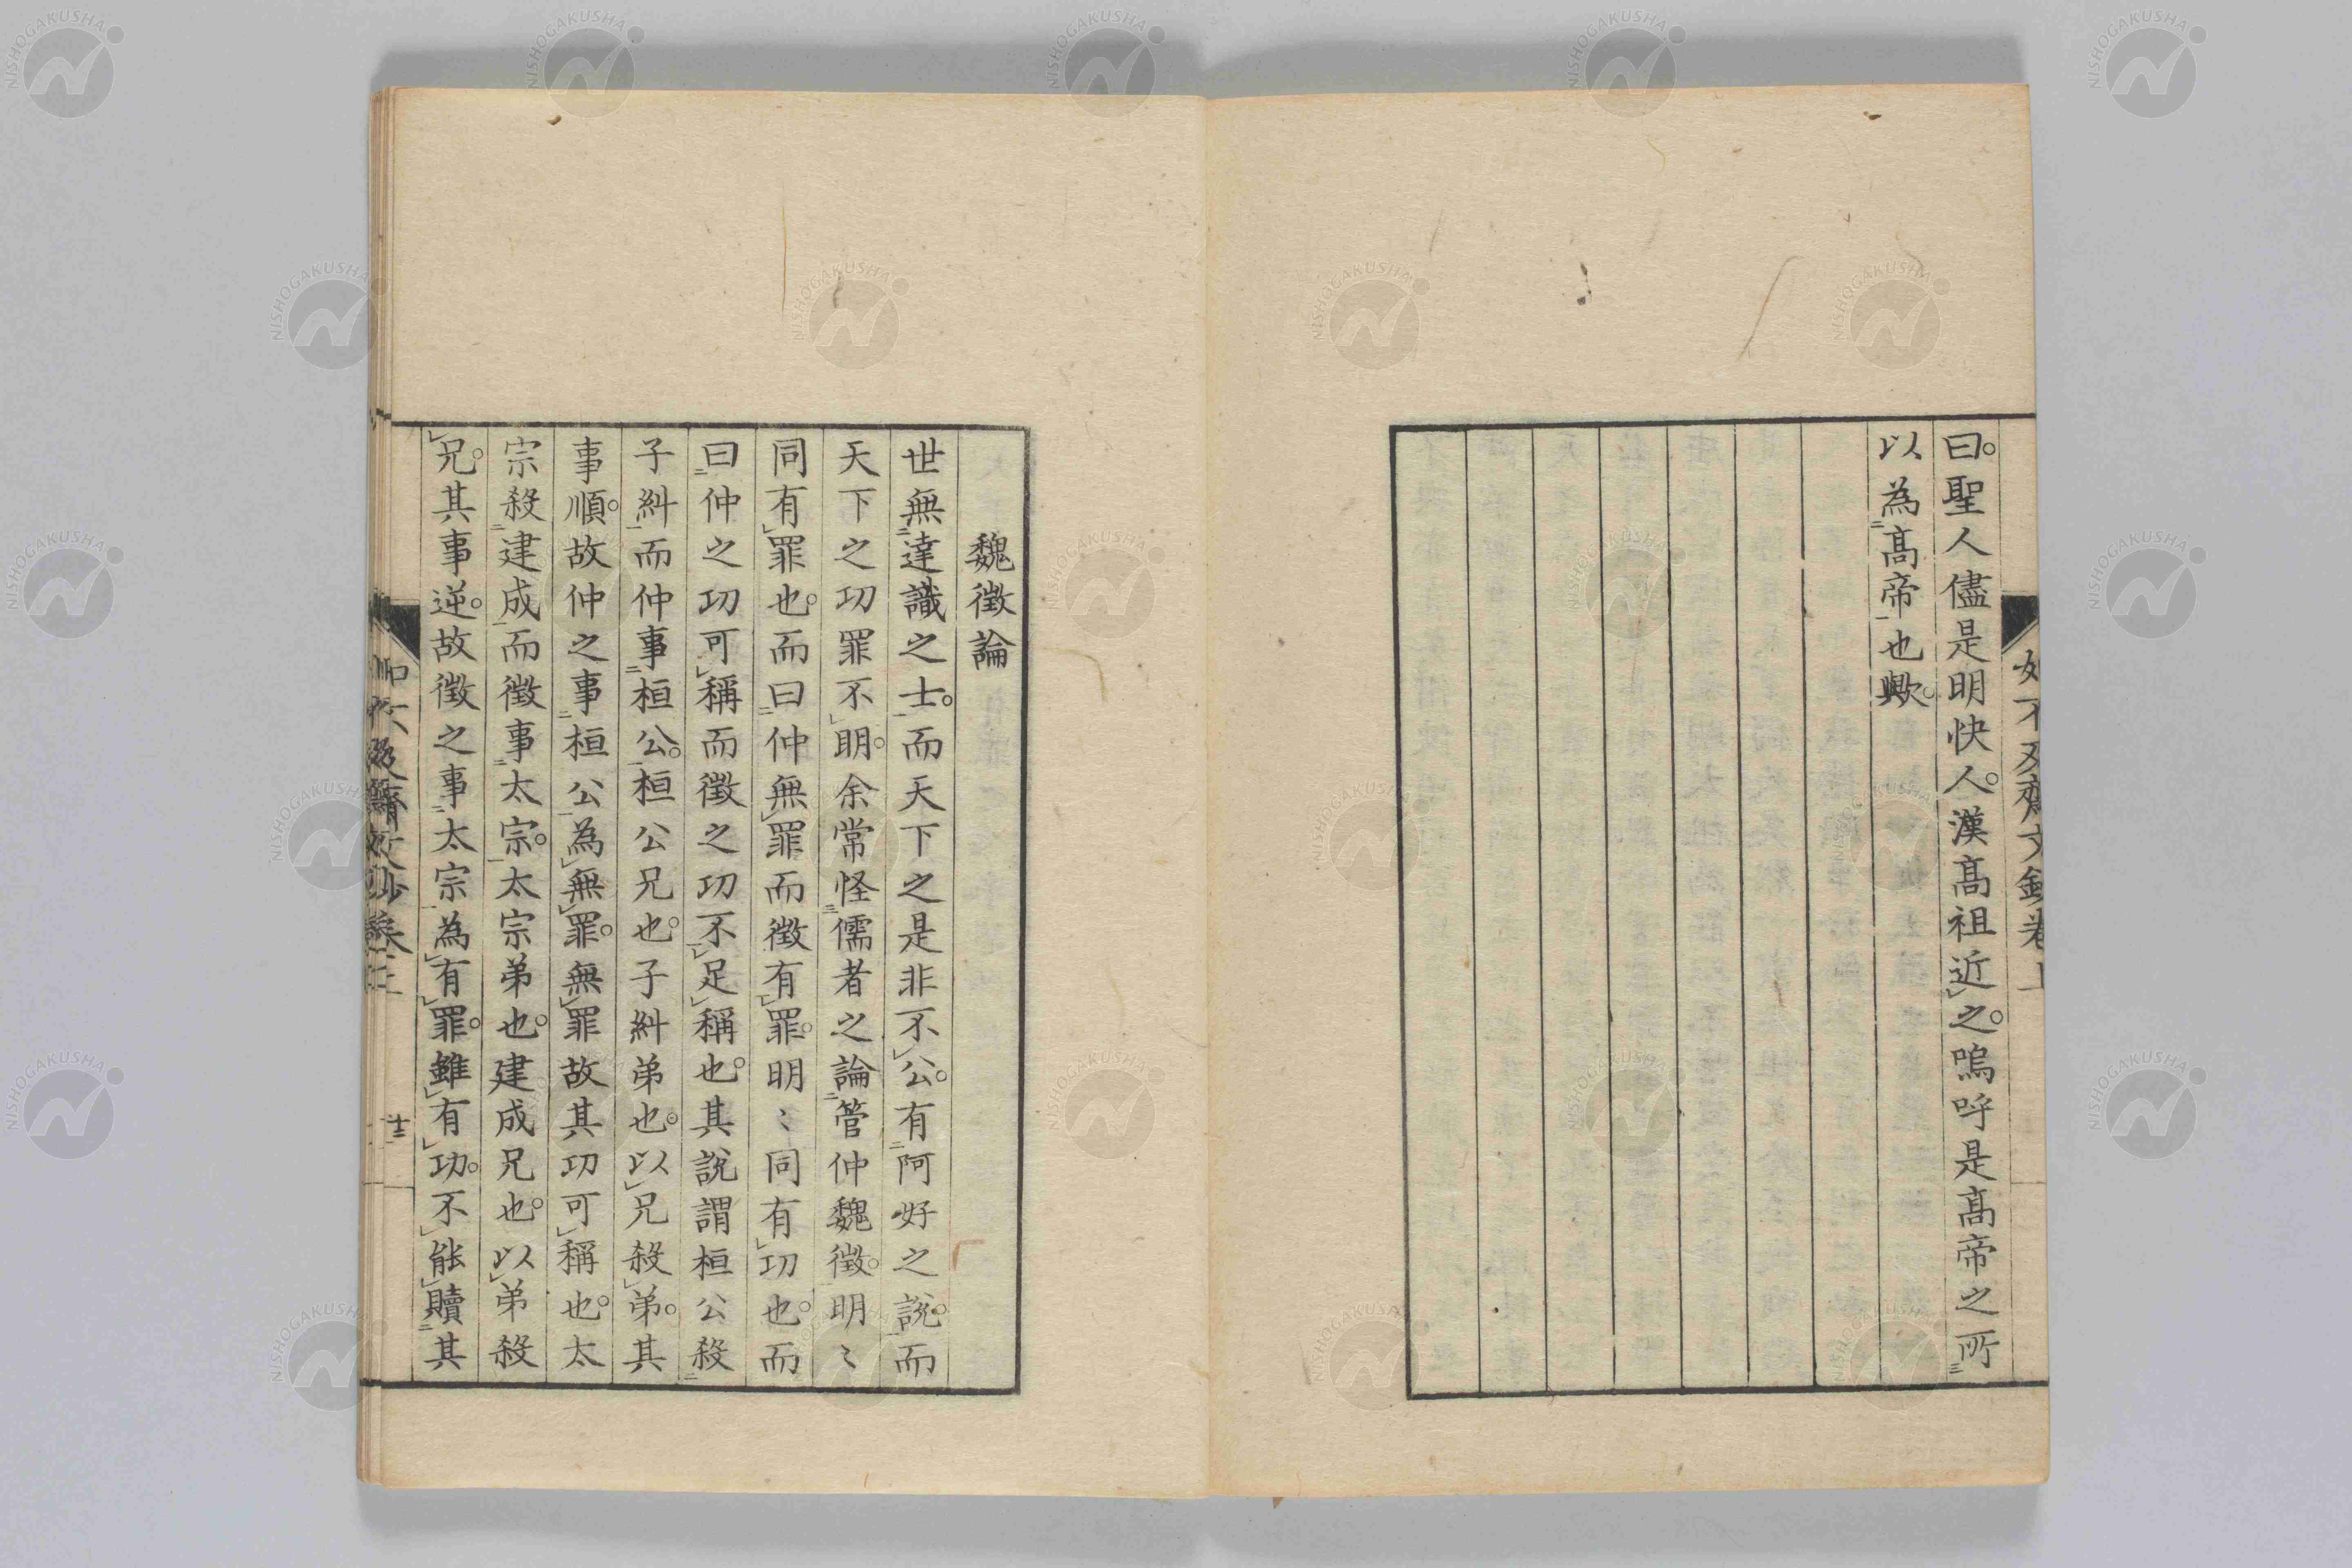 曰。聖人儘是明快人。漢高祖近之。嗚呼是高帝之所
以為高帝也歟。
魏徵論
世無達識之士。而天下之是非不公。有阿好之說。而
天下之功罪不明。余常怪儒者之論管仲魏徵。明〻
同有罪也。而曰仲無罪而徵有罪。明〻同有功也。而
曰仲之功可稱而徵之功不足稱也。其說謂桓公殺
子糾而仲事桓公。桓公兄也。子糾弟也。以兄殺弟。其
事順。故仲之事桓公為無罪。無罪故其功可稱也。太
宗殺建成而徵事太宗。太宗弟也。建成兄也。以弟殺
兄。其事逆。故徵之事太宗為有罪。雖有功。不能贖其
如不及齋文鈔卷上
十三
NISHOGAKUSHA